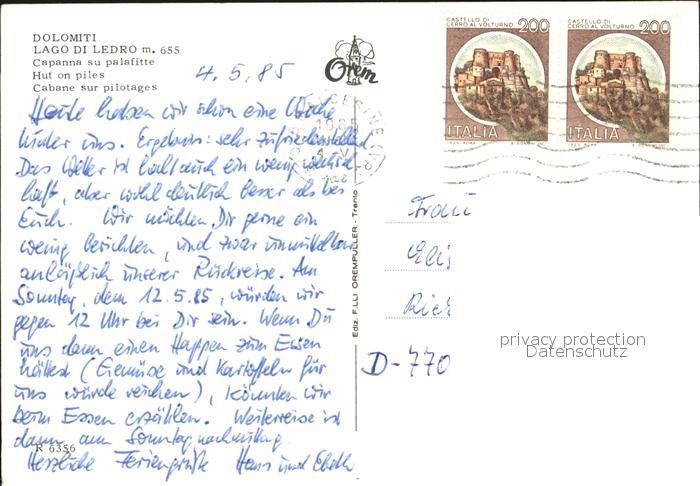 DOLOMITI
LAGO DI LEDRO m. 655
Capanna su palafitte
Hut on piles
Cabane sur pilotages
4.5.85
Orem
CASTELLO DI CERRO AL VOLTURNO 200
ITALIA
CASTELLO DI CERRO AL VOLTURNO 200
ITALIA
Heute haben wir schon eine Woche
hinter uns. Ergebnis: sehr zufriedenstellend.
Das Wetter ist halt auch ein wenig
haft, aber wohl deutlich besser als bei
Euch. Wir möchten Dir gerne ein
wenig berichten, und zwar unmittelbar
anläßlich unserer Rückreise. Am
Sonntag, dem 12.5.85, würden wir
gegen 12 Uhr bei Dir sein. Wenn Du
uns dann einen Happen zum Essen
hättest (Gemüse und Kartoffeln für
uns würde reichen), könnten wir
beim Essen erzählen. Weiterreise ist
dann am Sonntag nachmittag.
R 6356
Herzliche Feriengrüße Hans und
Ediz. F.LLI OREMPULLER - Trento
Frau
Elis
D-770
privacy protection
Datenschutz